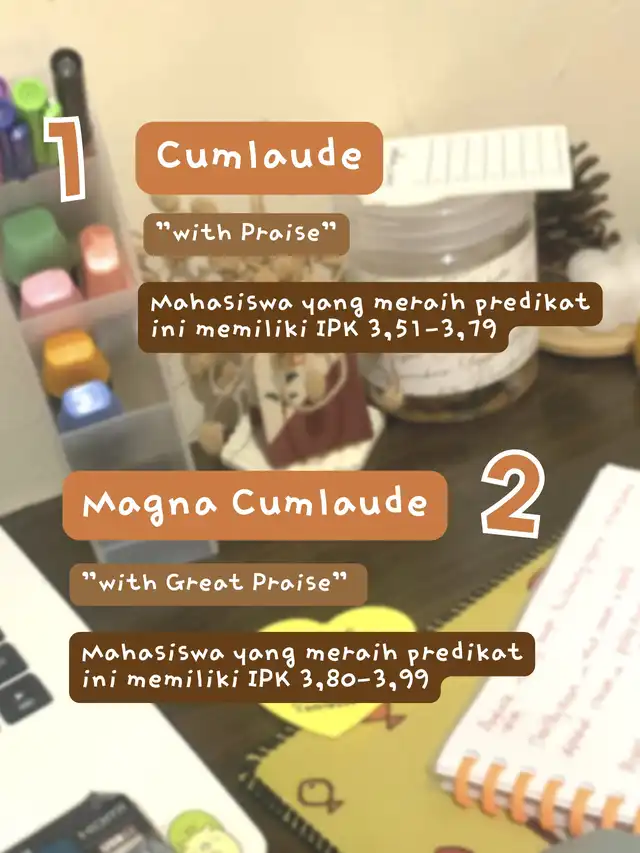 1
Cumlaude
"with Praise"
Mahasiswa yang meraih predikat
ini memiliki IPK 3,51-3,79
2
Magna Cumlaude
"with Great Praise"
Mahasiswa yang meraih predikat
ini memiliki IPK 3,80-3,99